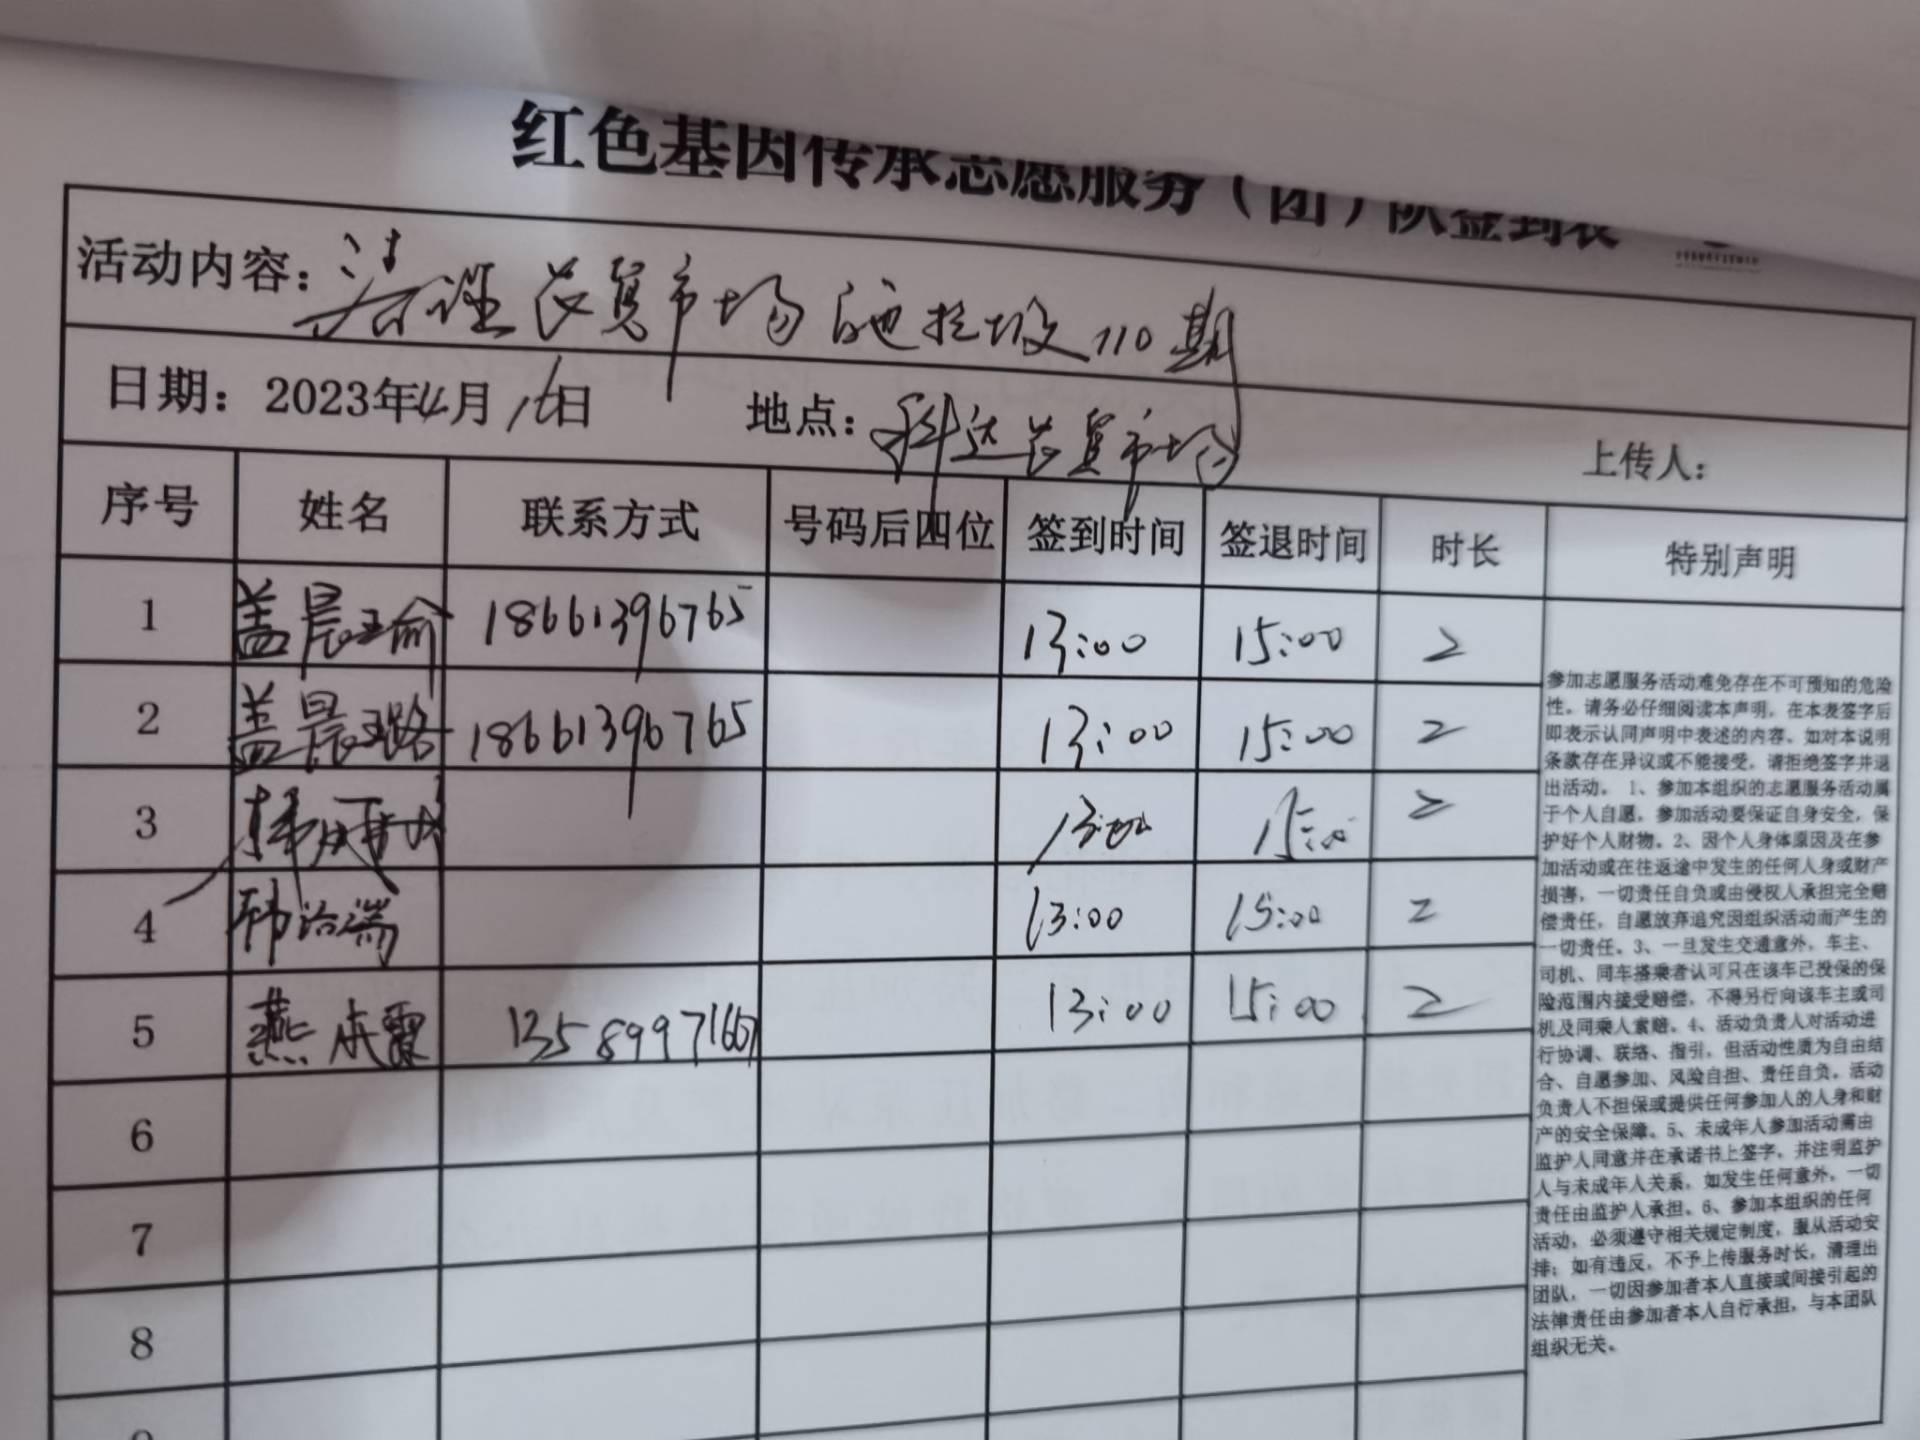 红色基因传承志愿服务（团）队签到表
活动内容：清理农贸市场的垃圾110期
日期：2023年4月16日 地点：科达农贸市场 上传人：
序号 姓名 联系方式 号码后四位 签到时间 签退时间 时长 特别声明
1 盖晨瑜 18661396765 13:00 15:00 2
2 盖晨璐 18661396765 13:00 15:00 2
3 韩 13:00 15:00 2
4 韩 端 13:00 15:00 2
5 燕成霞 13589971667 13:00 15:00 2
6
7
8
9
参加志愿服务活动难免存在不可预知的危险
性。请务必仔细阅读本声明，在本表签字后
即表示认同声明中表述的内容。如对本说明
条款存在异议或不能接受，请拒绝签字并退
出活动。1、参加本组织的志愿服务活动属
于个人自愿，参加活动要保证自身安全，保
护好个人财物。2、因个人身体原因及在参
加活动或在往返途中发生的任何人身或财产
损害，一切责任自负或由侵权人承担完全赔
偿责任，自愿放弃追究因组织活动而产生的
一切责任。3、一旦发生交通意外，车主、
司机、同车搭乘者认可只在该车已投保的保
险范围内接受赔偿，不得另行向该车主或司
机及同乘人索赔。4、活动负责人对活动进
行协调、联络、指引，但活动性质为自由结
合、自愿参加、风险自担、责任自负。活动
负责人不担保或提供任何参加人的人身和财
产的安全保障。5、未成年人参加活动需由
监护人同意并在承诺书上签字，并注明监护
人与未成年人关系，如发生任何意外，一切
责任由监护人承担。6、参加本组织的任何
活动，必须遵守相关规定制度，服从活动安
排；如有违反，不予上传服务时长，清理出
团队，一切因参加者本人直接或间接引起的
法律责任由参加者本人自行承担，与本团队
组织无关。